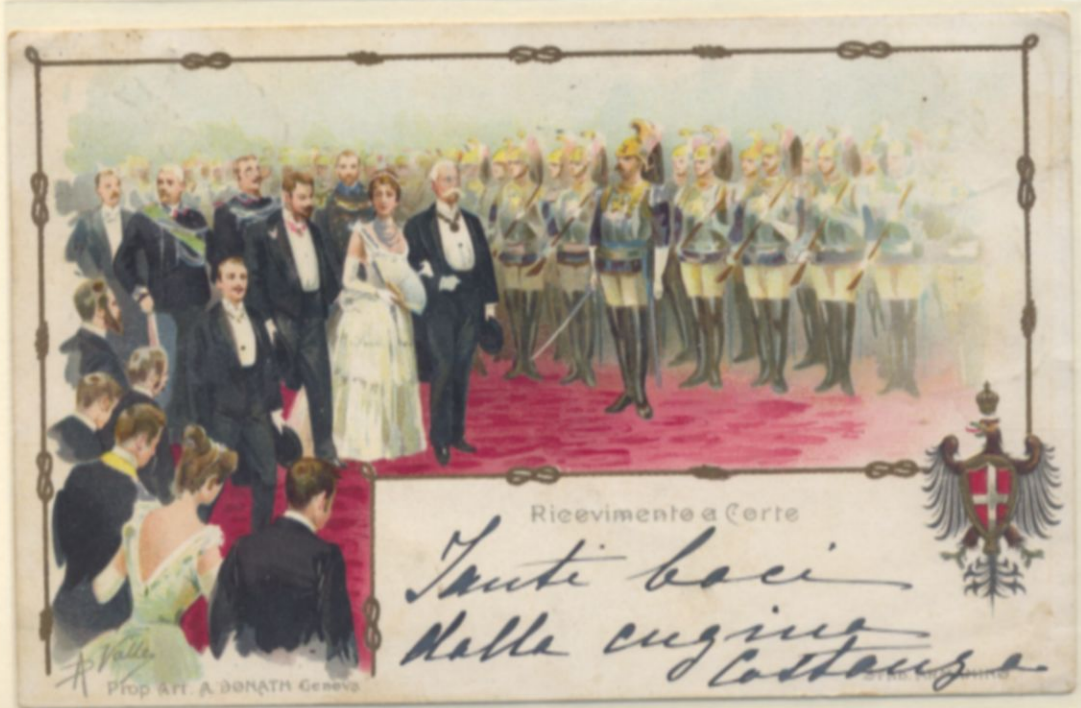 Ricevimento a Corte
Tanti baci
dalla cugina
Costanza
A Valle
Prop. Art. A. DONATH Genova